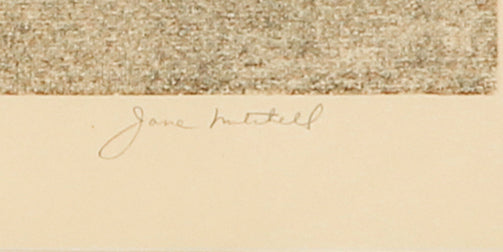 Jane Mitchell